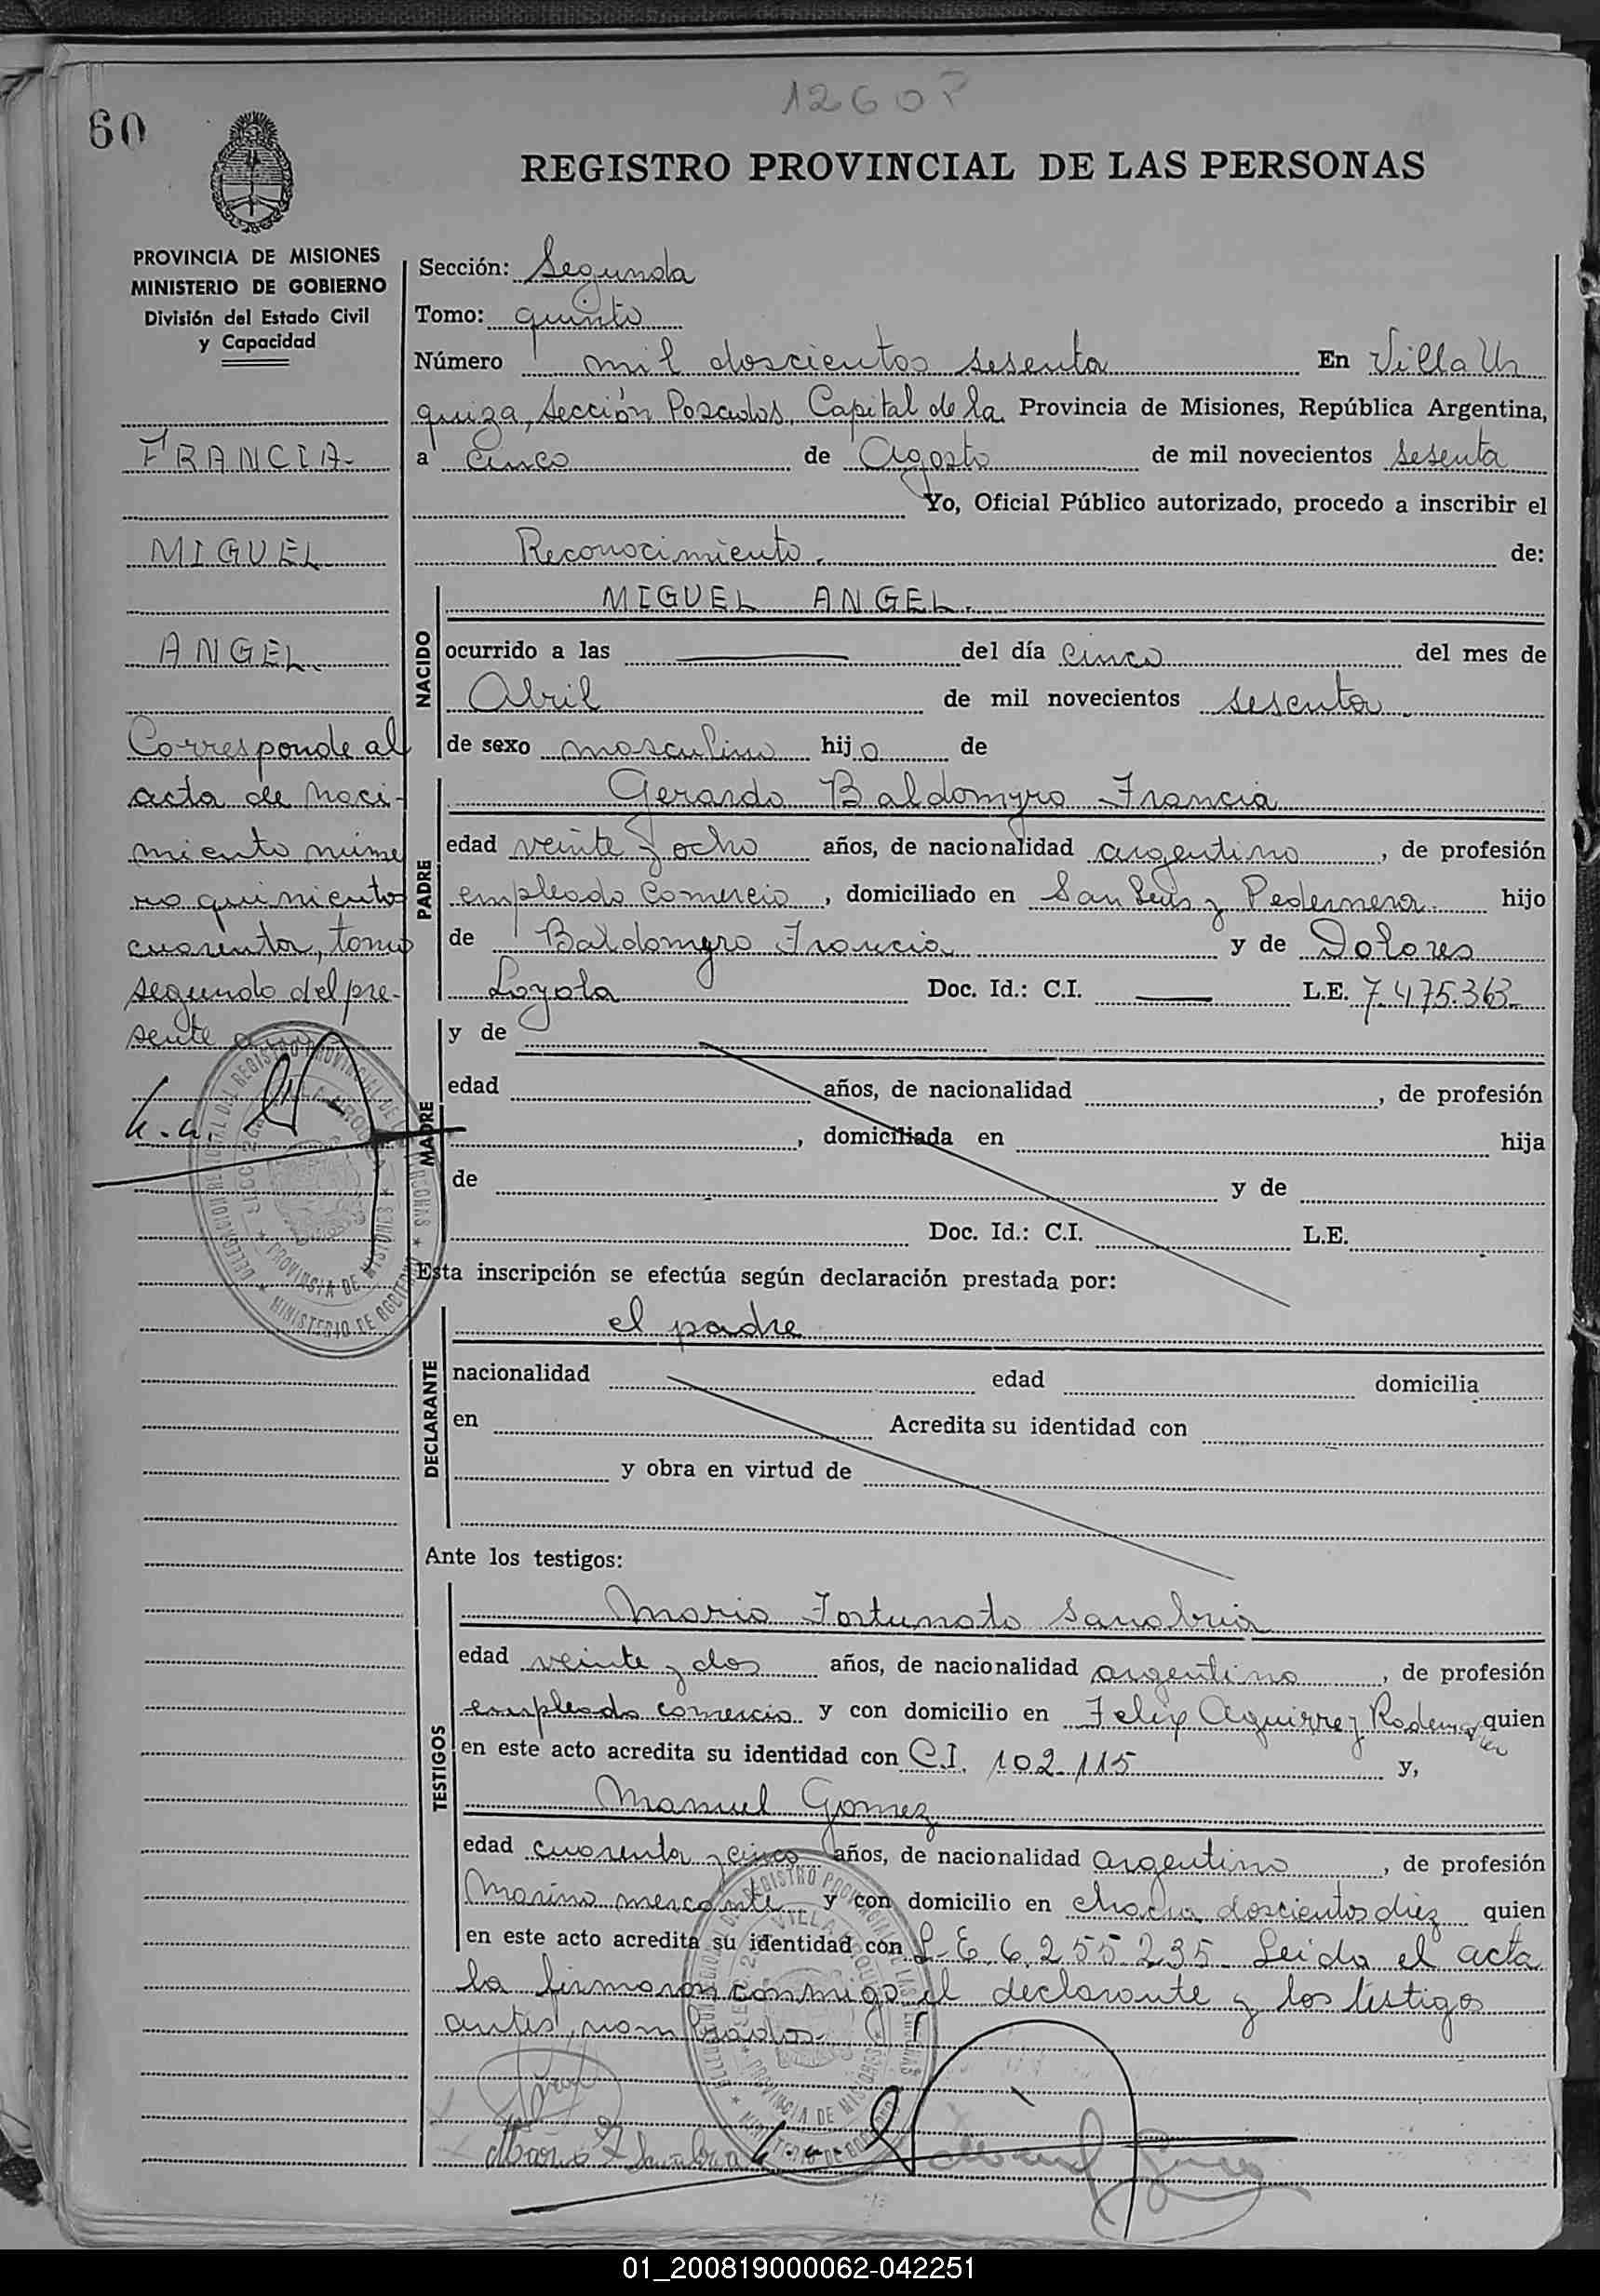 1260
60
REGISTRO PROVINCIAL DE LAS PERSONAS
PROVINCIA DE MISIONES
MINISTERIO DE GOBIERNO
División del Estado Civil
y Capacidad
FRANCIA-
MIGUEL
ANGEL.
Corresponde al
acta de naci-
miento núme
ro quinientos
cuarenta, tomo
segundo del pre-
sente año
Sección: Segunda
Tomo: quinto
Número mil doscientos sesenta En Villa Ur
quiza, Sección Posadas, Capital de la Provincia de Misiones, República Argentina,
a cinco de Agosto de mil novecientos sesenta
Yo, Oficial Público autorizado, procedo a inscribir el
Reconocimiento. de:
NACIDO
MIGUEL ANGEL.
ocurrido a las — del día cinco del mes de
Abril de mil novecientos sesenta
de sexo masculino hijo de
PADRE
Gerardo Baldomyro Francia
edad veinte y ocho años, de nacionalidad argentino, de profesión
empleado comercio, domiciliado en San Luis y Pedernera hijo
de Baldomyro Francia y de Dolores
Loyola Doc. Id.: C.I. — L.E. 7.475.363-
MADRE
y de
edad años, de nacionalidad , de profesión
, domiciliada en hija
de y de
Doc. Id.: C.I. L.E.
Esta inscripción se efectúa según declaración prestada por:
DECLARANTE
el padre
nacionalidad edad domicilia
en Acredita su identidad con
y obra en virtud de
Ante los testigos:
TESTIGOS
Mario Fortunato Sanabria
edad veinte y dos años, de nacionalidad argentino, de profesión
empleado comercio y con domicilio en Felix Aguirre y quien
en este acto acredita su identidad con C.I. 102.115 y,
Manuel Gomez
edad cuarenta y cinco años, de nacionalidad argentino, de profesión
Marino mercante y con domicilio en chacra doscientos diez quien
en este acto acredita su identidad con L.E 6.255.235. Leida el acta
la firmaron conmigo el declarante y los testigos
antes nombrados.
Mario F Sanabria
01_200819000062-042251